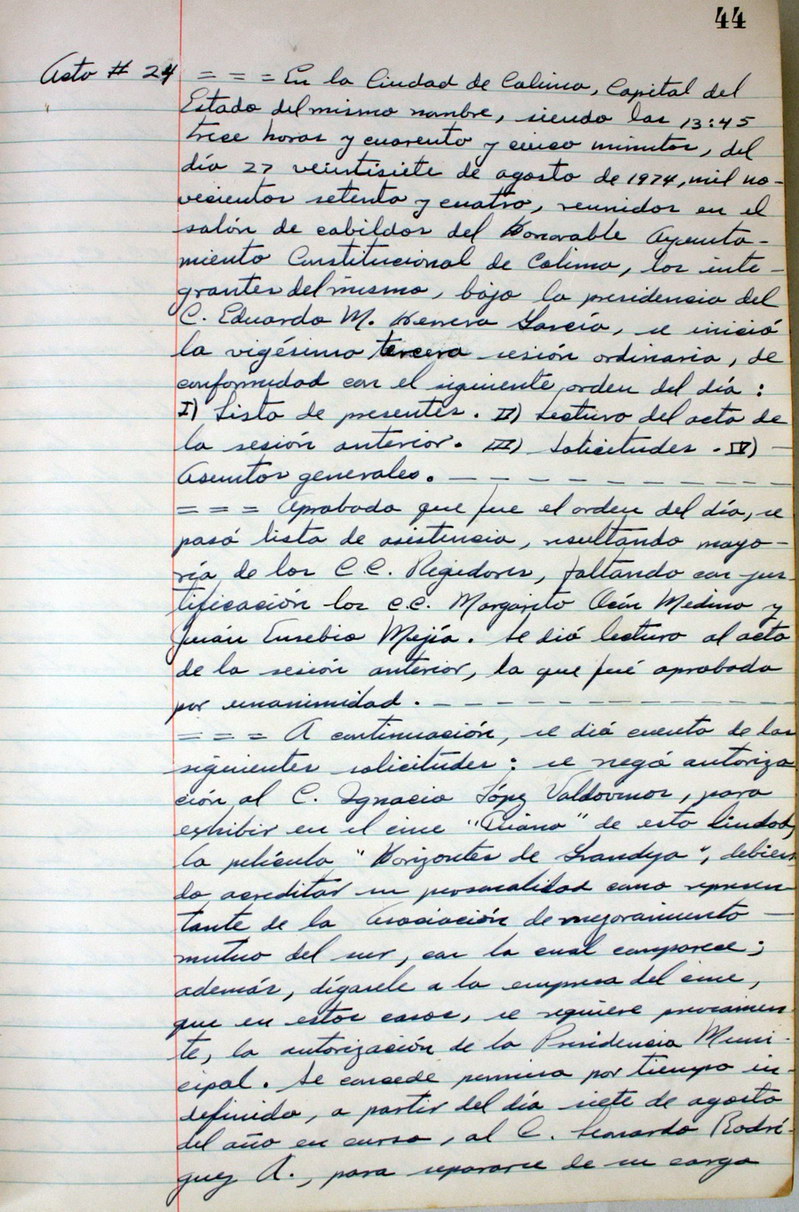 44
Acta # 24 = = = En la Ciudad de Colima, Capital del
Estado del mismo nombre, siendo las 13:45
trece horas y cuarenta y cinco minutos, del
día 27 veintisiete de agosto de 1974, mil no-
vecientos setenta y cuatro, reunidos en el
salón de cabildos del Honorable Ayunta-
miento Constitucional de Colima, los inte-
grantes del mismo, bajo la presidencia del
C. Eduardo M. Herrera García, se inició
la vigésima tercera sesión ordinaria, de
conformidad con el siguiente orden del día:
I) Lista de presentes. II) Lectura del acta de
la sesión anterior. III) Solicitudes. IV) —
Asuntos generales. — — — — — — — — — —
= = = Aprobada que fue el orden del día, se
pasó lista de asistencia, resultando mayo-
ría de los C.C. Regidores, faltando con jus-
tificación los C.C. Margarito Ocón Medina y
Juán Eusebio Mejía. Se dió lectura al acta
de la sesión anterior, la que fué aprobada
por unanimidad. — — — — — — — — — — —
= = = A continuación, se dió cuenta de las
siguientes solicitudes: se negó autoriza
ción al C. Ignacio López Valdovinos, para
exhibir en el cine "Diana" de esta Ciudad,
la película "Horizontes de Grandeza", debien
do acreditar su personalidad como represen
tante de la Asociación de mejoramiento —
mutuo del sur, con la cual comparece;
además, dígasele a la empresa del cine,
que en estos casos, se requiere previamen-
te, la autorización de la Presidencia Muni-
cipal. Se concede permiso por tiempo in-
definido, a partir del día siete de agosto
del año en curso, al C. Leonardo Rodrí-
guez A., para separarse de su cargo